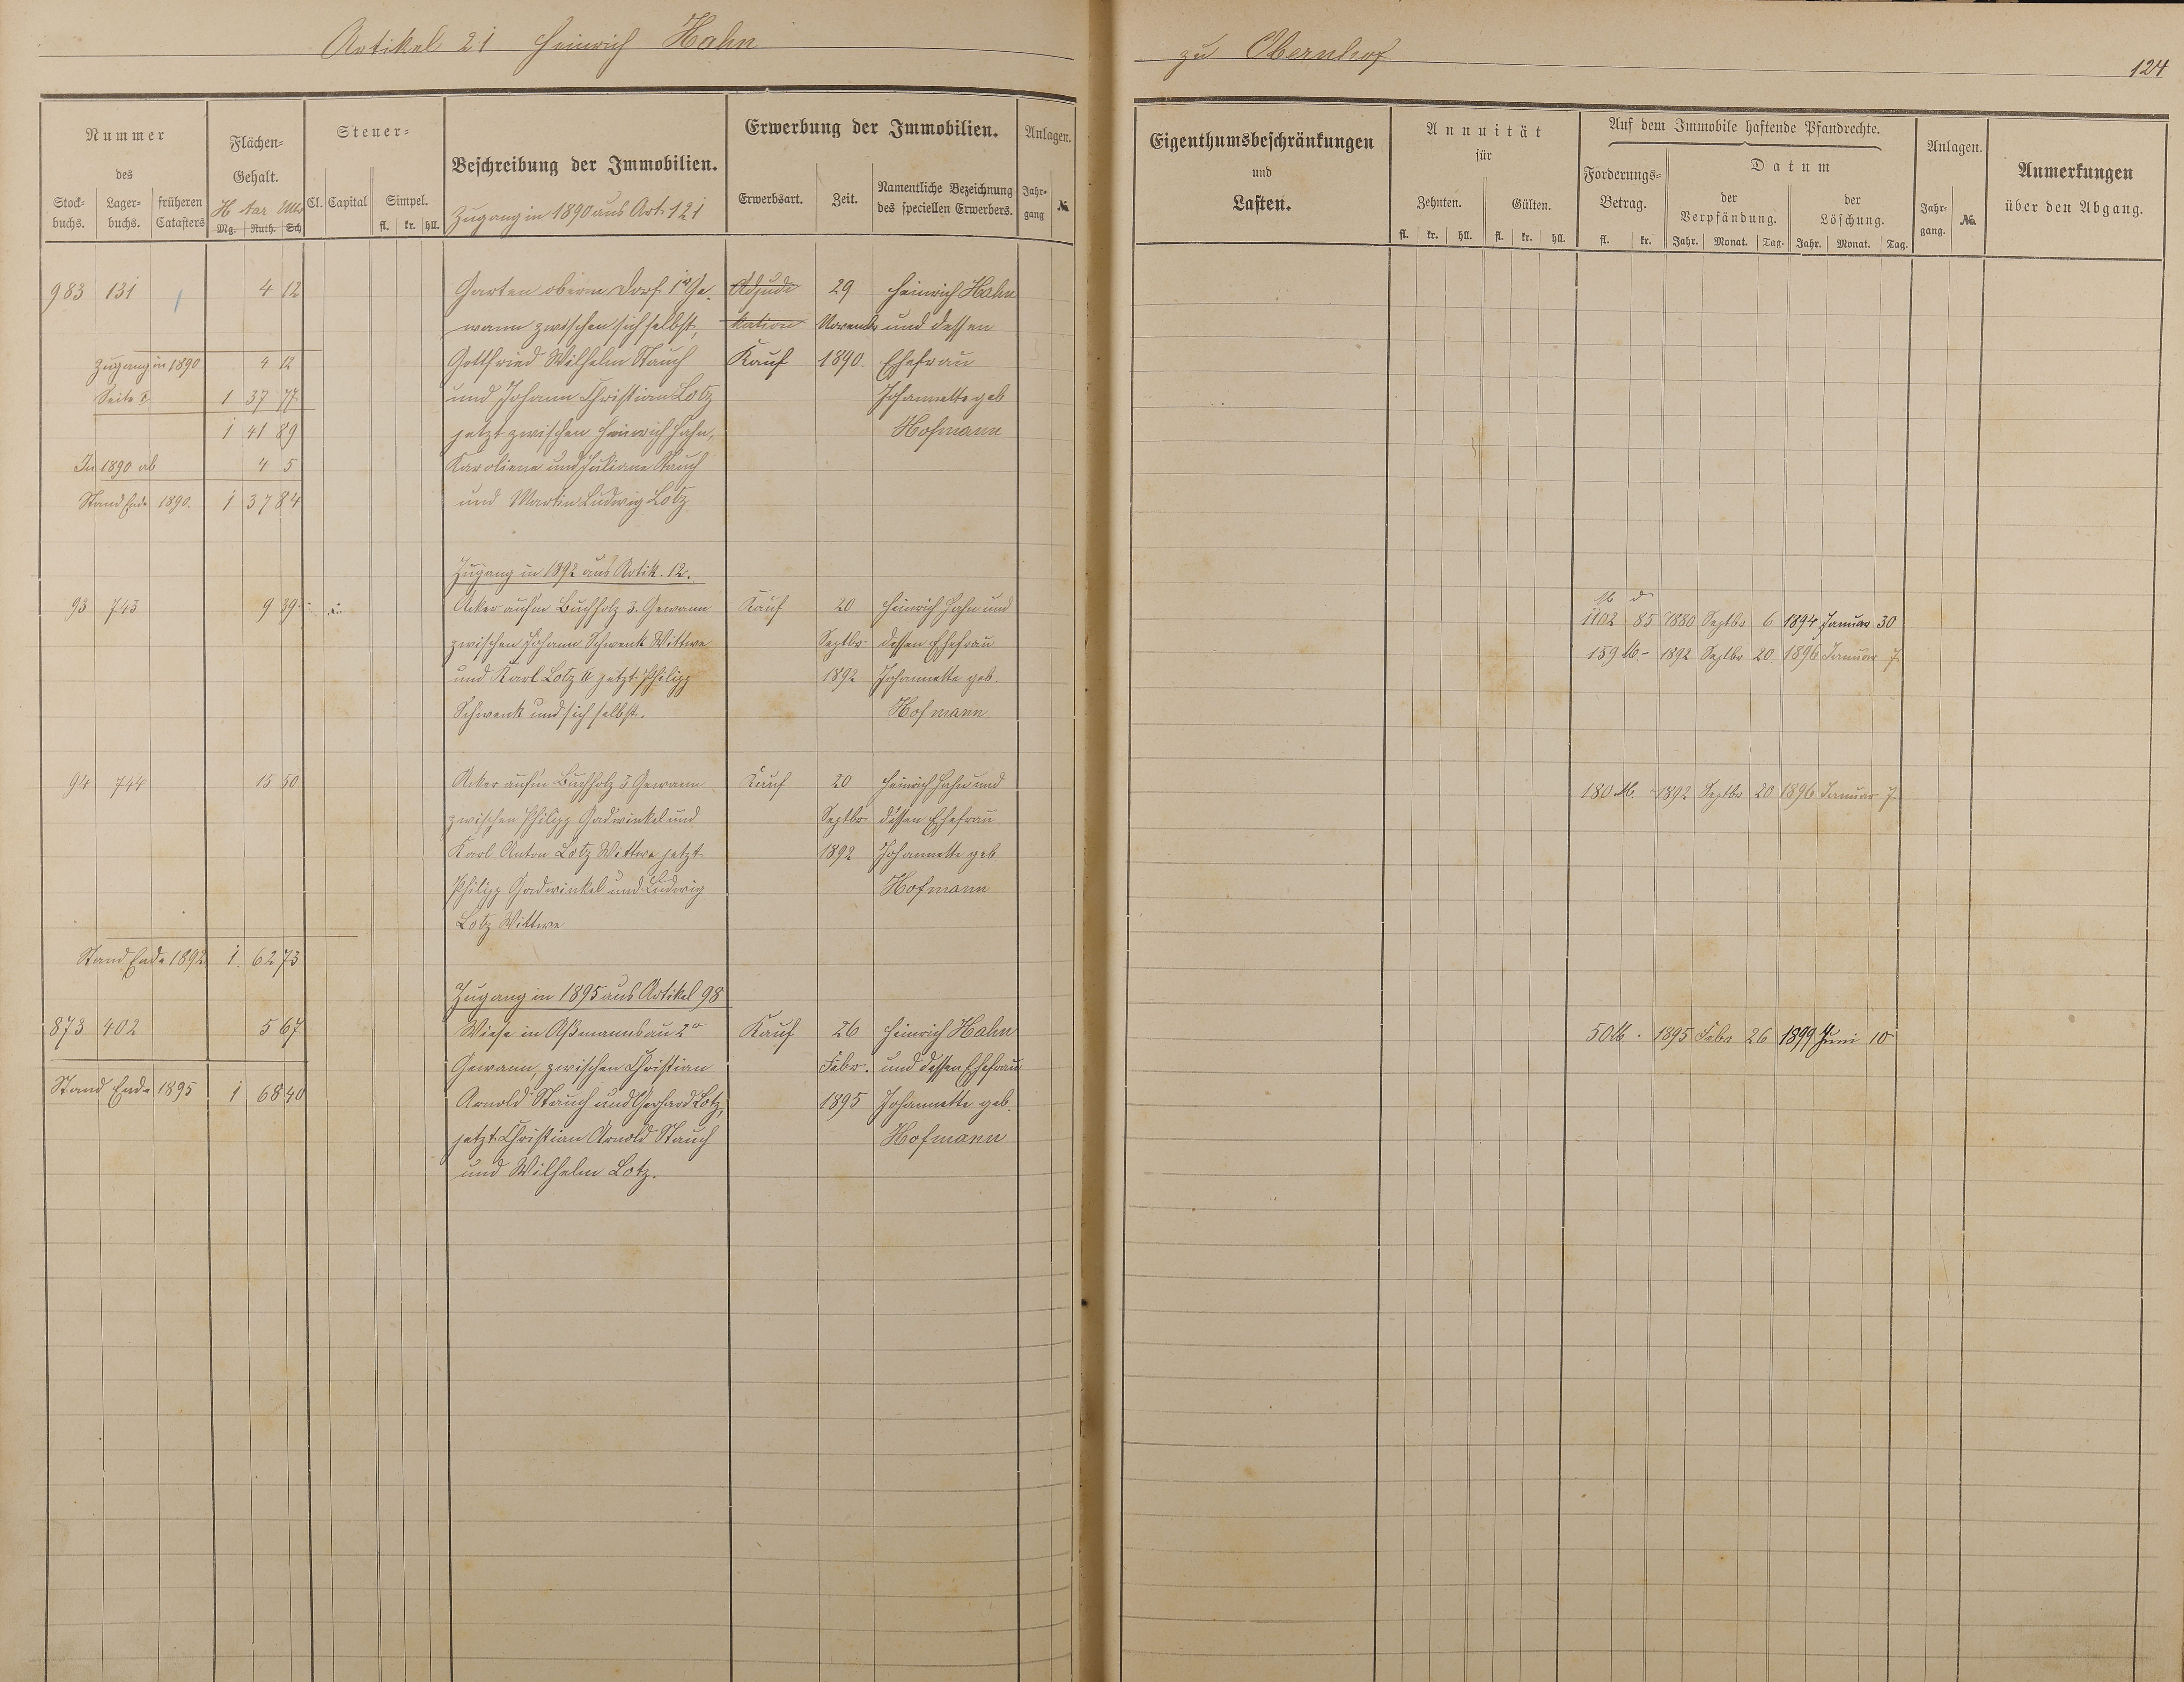 Artikel 21 Heinrich Hahn
zu Obernhof
124
Nummer
des
Stock-
buchs.
Lager-
buchs.
früheren
Catasters
Flächen-
Gehalt.
H Aar
Mg. Ruth. Sch
Steuer-
Cl. Capital
Simpel.
fl. kr. hll.
Beschreibung der Immobilien.
Zugang in 1890 aus Art. 121
Erwerbung der Immobilien.
Erwerbsart.
Zeit.
Namentliche Bezeichnung
des speciellen Erwerbers.
Anlagen.
Jahr-
gang
№
Eigenthumsbeschränkungen
und
Lasten.
Annuität
für
Zehnten.
Gülten.
fl. kr. hll. fl. kr. hll.
Auf dem Immobile haftende Pfandrechte.
Forderungs-
Betrag.
fl. kr.
Datum
der
Verpfändung.
Jahr. Monat. Tag.
der
Löschung.
Jahr. Monat. Tag.
Anlagen.
Jahr-
gang.
No.
Anmerkungen
über den Abgang.
983 131 4 12 Garten oberm Dorf 1r Ge- Adjudi- 29 Heinrich Hahn
wann zwischen sich selbst, kation Novembr und dessen
Zugang in 1890 4 12 Gottfried Wilhelm Stauch Kauf 1890 Ehefrau
Seite 1 37 77 und Johann Christian Lotz Johannette geb
1 41 89 jetzt zwischen Heinrich Hahn, Hofmann
In 1890 ab 4 5 Karoliene und Juliane Stauch
Stand Ende 1890. 1 37 84 und Martin Ludwig Lotz
Zugang in 1892 aus Artik. 12.
93 743 9 39 Acker auf'm Buchholz 3. Gewann Kauf 20 Heinrich Hahn und
1102 85 1880 Septbr 6 1894 Januar 30
zwischen Johann Schwenk Wittwe Septbr dessen Ehefrau
159 M. - 1892 Septbr 20 1896 Januar 7
und Karl Lotz II jetzt Philipp 1892 Johannette geb.
Schwenk und sich selbst. Hofmann
94 744 15 50 Acker auf'm Buchholz 3 Gewann Kauf 20 Heinrich Hahn und
180 M. - 1892 Septbr 20 1896 Januar 7
zwischen Philipp Gadwinkel und Septbr dessen Ehefrau
Karl Anton Lotz Wittwe jetzt 1892 Johannette geb
Philipp Gadwinkel und Ludwig Hofmann
Lotz Wittwe
Stand Ende 1892 1 62 73
Zugang in 1895 aus Artikel 98
873 402 5 67 Wiese in Aßmannsau 2r Kauf 26 Heinrich Hahn
50 M. - 1895 Febr 26 1899 Juni 10
Gewann, zwischen Christian Febr. und dessen Ehefrau
Stand Ende 1895 1 68 40 Arnold Stauch und Gerhard Lotz, 1895 Johannette geb.
jetzt Christian Arnold Stauch Hofmann
und Wilhelm Lotz.